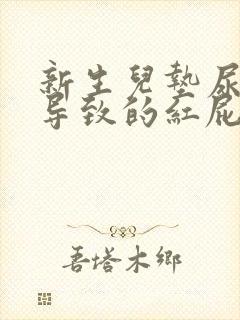 新生兒墊尿
导致的紅屁
吾塔木鄉